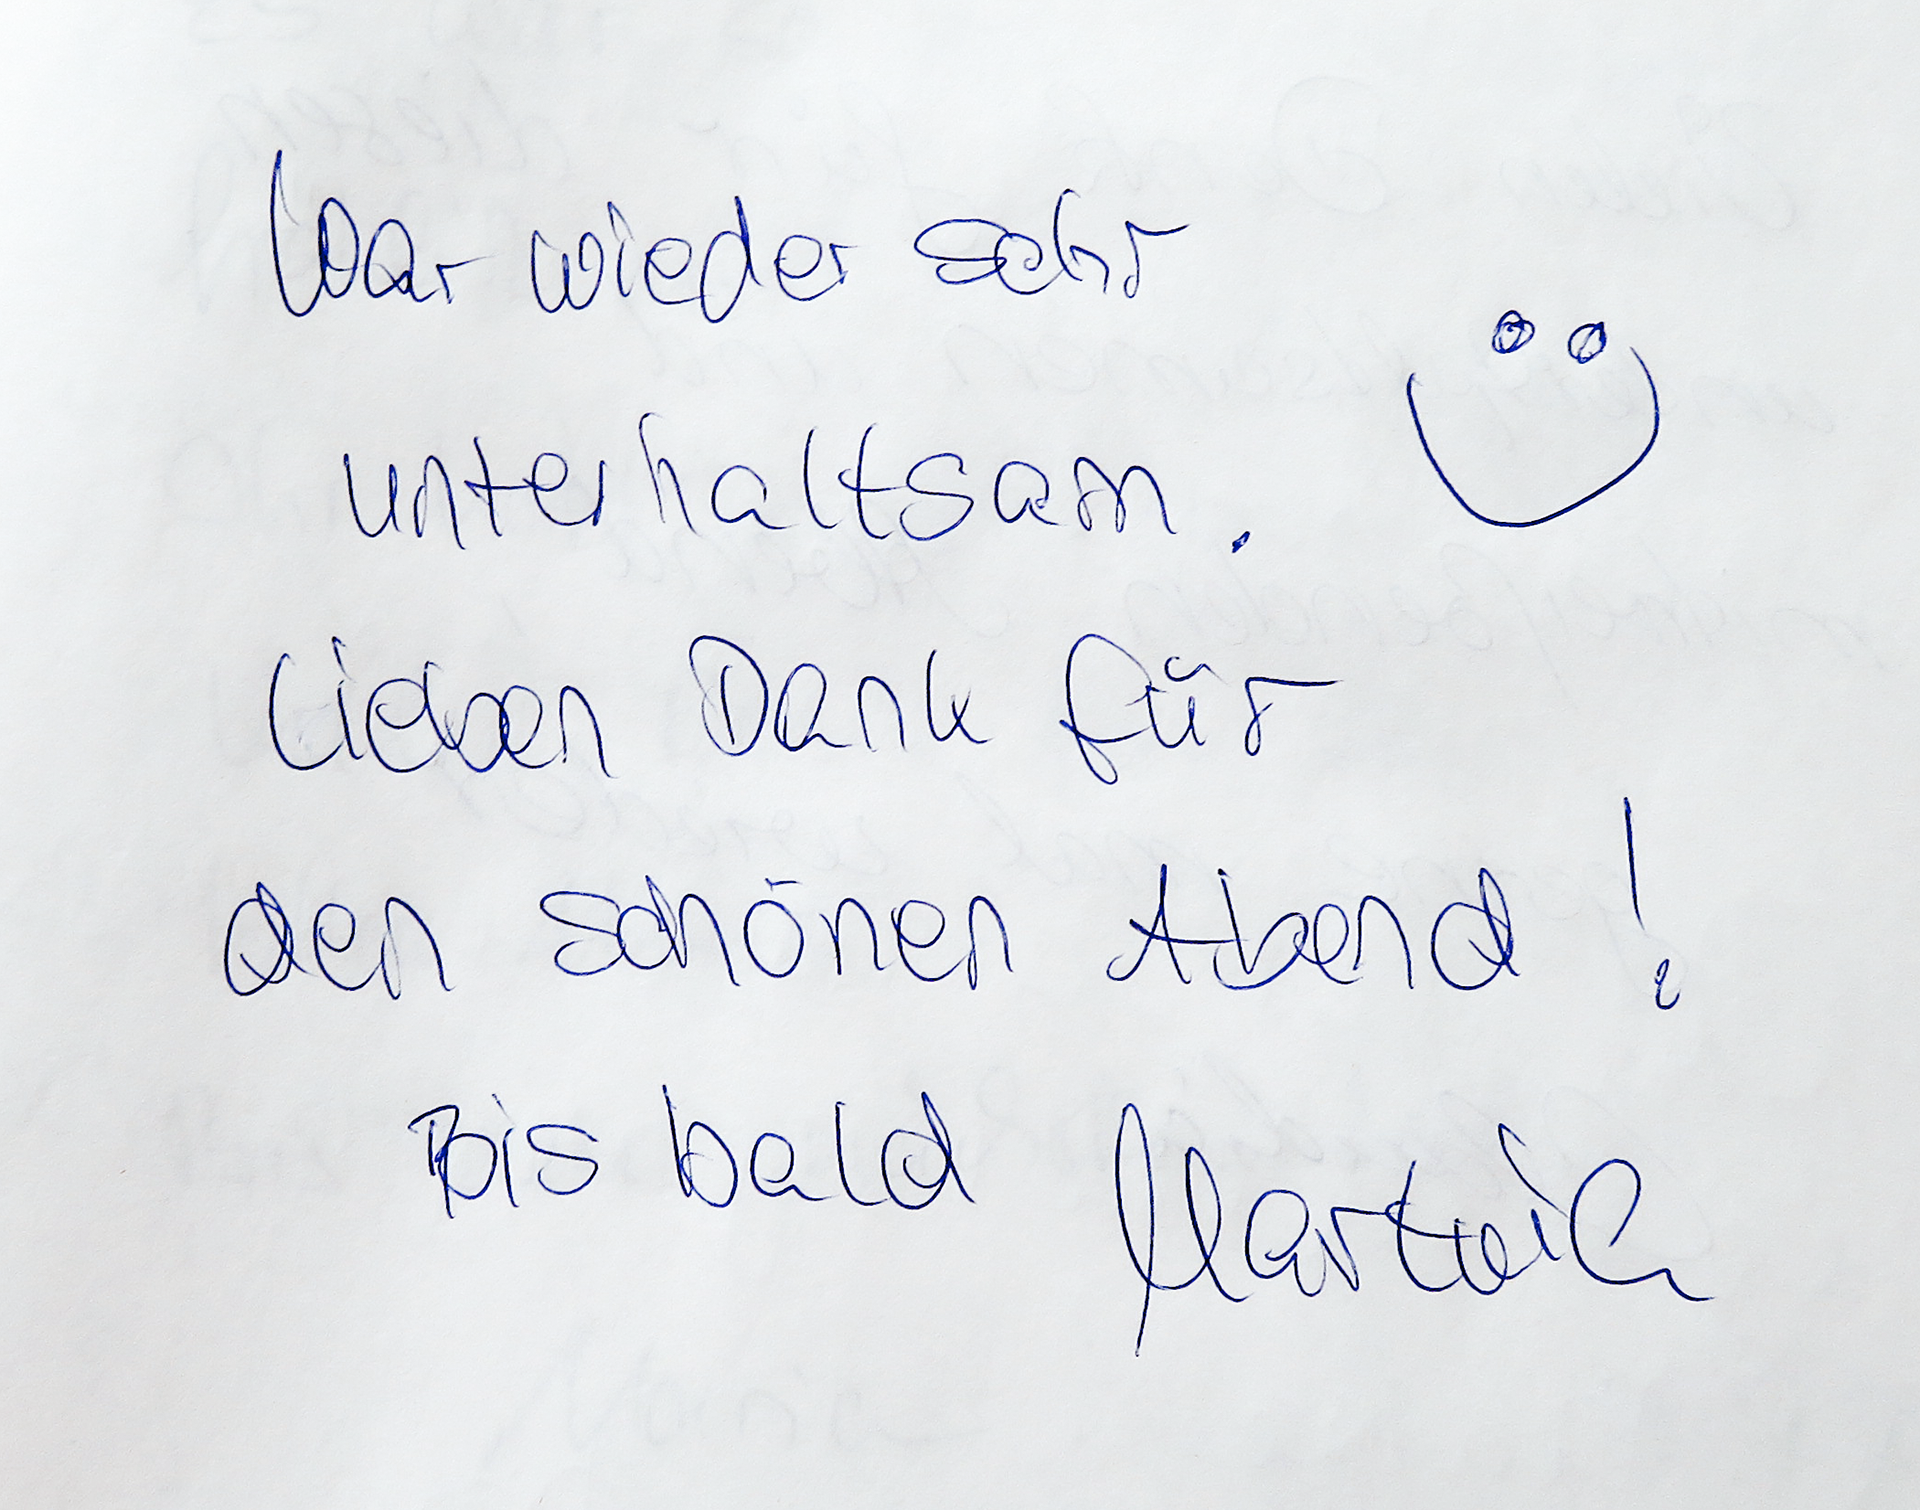 War wieder sehr
unterhaltsam.
Lieben Dank für
den schönen Abend!
Bis bald